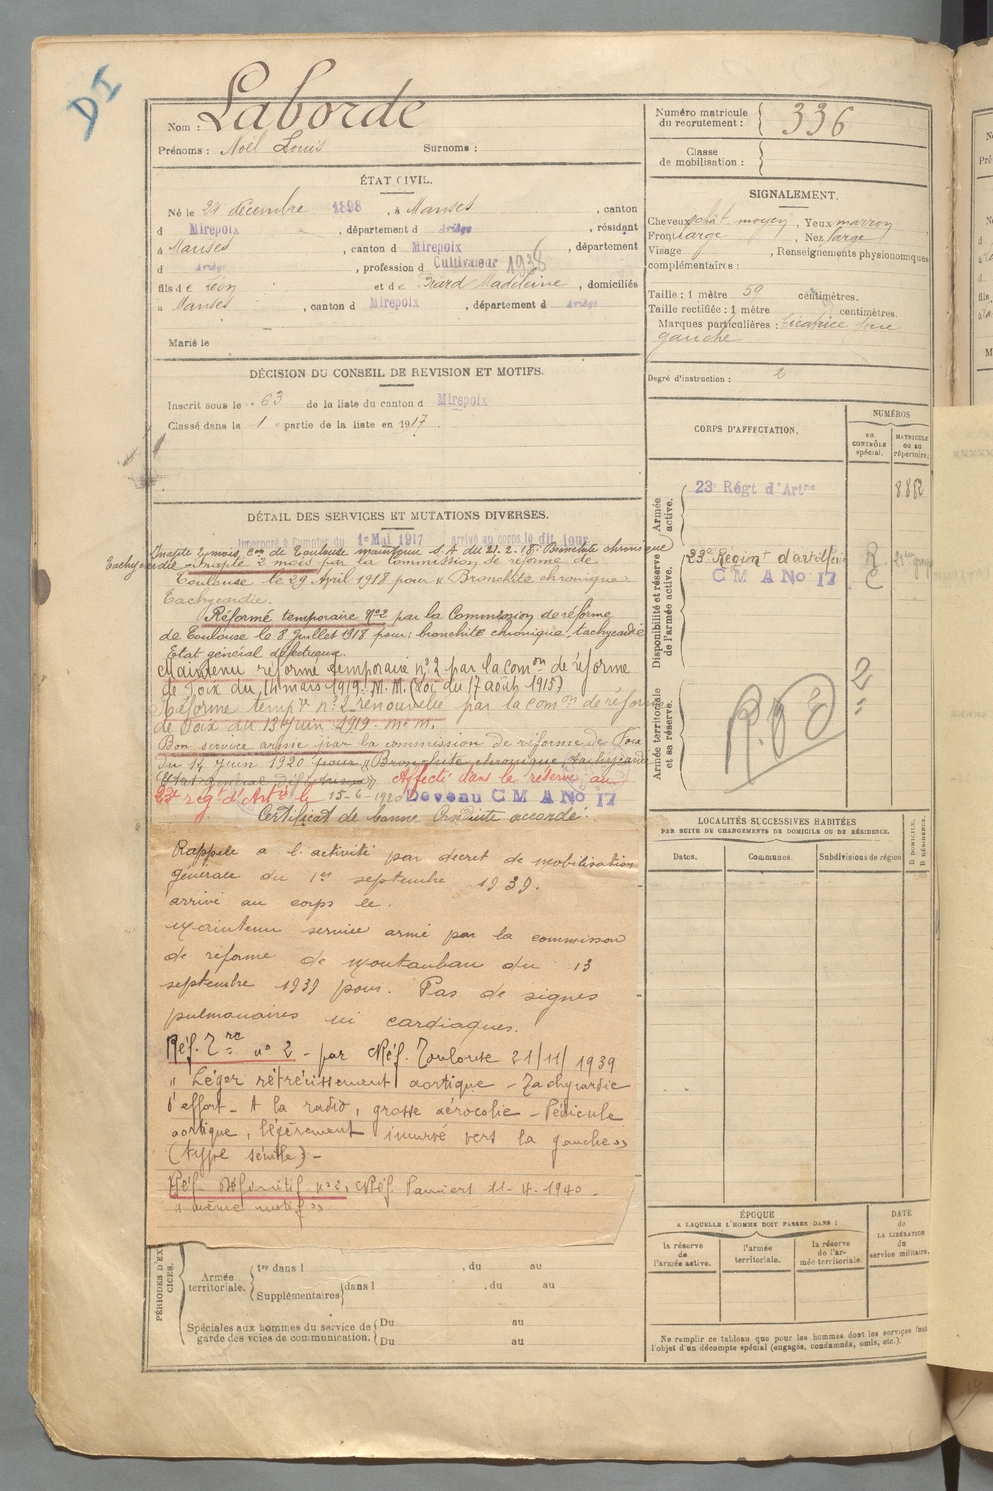 DI
Nom : Laborde
Prénoms : Noël Louis Surnoms :
ÉTAT CIVIL.
Né le 24 décembre 1898, à Manses, canton
d Mirepoix, département d Ariège, résidant
à Manses, canton d Mirepoix, département
d Ariège, profession d Cultivateur 1938
fils de Léon et de Briard Madeleine, domiciliés
à Manses, canton d Mirepoix, département d Ariège
Marié le
DÉCISION DU CONSEIL DE REVISION ET MOTIFS.
Inscrit sous le n° 63 de la liste du canton d Mirepoix
Classé dans la 1e partie de la liste en 1917.
DÉTAIL DES SERVICES ET MUTATIONS DIVERSES.
Incorporé à Compter du 1e Mai 1917 arrivé au corps le dit jour
Inapte 2 mois Con de Toulouse maintenu S.A du 21-2-18. Bronchite chronique
Tachycardie Inapte 2 mois par la Commission de réforme de
Toulouse le 29 April 1918 pour « Bronchite chronique
Tachycardie.
Réformé temporaire N°2 par la Commission de réforme
de Toulouse le 8 Juillet 1918 pour: bronchite chronique, tachycardie
Etat général défectueux.
Maintenu réformé temporaire n°2 par la comon de réforme
de Foix du 14 mars 1919. M. M. (Loi du 17 août 1915)
Réforme tempre n°2 renouvelée par la comon de réforme
de Foix du 13 Juin 1919. m. m.
Bon service armé par la commission de réforme de Foix
du 14 Juin 1920 pour « Bronchite chronique, tachycardie
Etat général défectueux » Affecté dans le réserve au
23e régt d'Artie le 15-6-1920 Devenu C M A No 17
Certificat de bonne Conduite accordé.
Rappelé a l'activité par decret de mobilisation
générale du 1er septembre 1939.
arrivé au corps le.
Maintenu service armé par la commisson
de réforme de Montauban du 13
septembre 1939 pour. Pas de signes
pulmonaires ni cardiaques.
Réf. Tre n° 2 - par CRéf. Toulouse 21/11/1939
« Léger rétrécissement aortique - Tachycardie
d'effort - A la radio, grosse aérocolie - Pédicule
aortique, légèrement incurvé vers la gauche »
(type sénile) -
Réf. Définitif n°2, CRéf. Pamiers 11-4-1940 -
« même motif »
PÉRIODES D'EXERCICES.
Armée territoriale. 1re dans l , du au
Supplémentaires dans l , du au
Spéciales aux hommes du service de garde des voies de communication. Du au
Du au
Numéro matricule du recrutement : 336
Classe de mobilisation :
SIGNALEMENT.
Cheveux chât. moyen, Yeux marron
Front large, Nez large
Visage , Renseignements physionomiques
complémentaires :
Taille : 1 mètre 59 centimètres.
Taille rectifiée : 1 mètre centimètres.
Marques particulières : Cicatrice joue
gauche
Degré d'instruction : 2
CORPS D'AFFECTATION.
NUMÉROS
AU CONTRÔLE spécial.
MATRICULE OU AU répertoire.
Armée active.
23e Régt d'Artrie
Disponibilité et réserve de l'armée active.
23e Regimt d'artillerie R
C M A No 17 C
Armée territoriale et sa réserve.
2
LOCALITÉS SUCCESSIVES HABITÉES
PAR SUITE DE CHANGEMENTS DE DOMICILE OU DE RÉSIDENCE.
Dates. Communes. Subdivisions de région
D DOMICILE.
R RÉSIDENCE.
ÉPOQUE
A LAQUELLE L'HOMME DOIT PASSER DANS :
la réserve de l'armée active.
l'armée territoriale.
la réserve de l'armée territoriale.
DATE de LA LIBÉRATION du service militaire.
Ne remplir ce tableau que pour les hommes dont les services font
l'objet d'un décompte spécial (engagés, condamnés, omis, etc.).